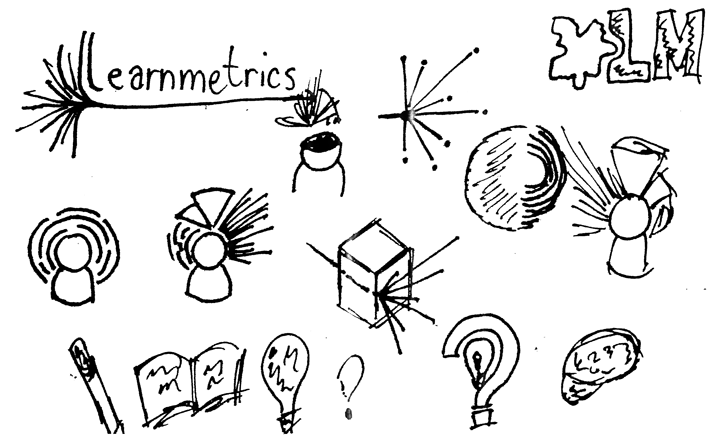 Learnmetrics
LM